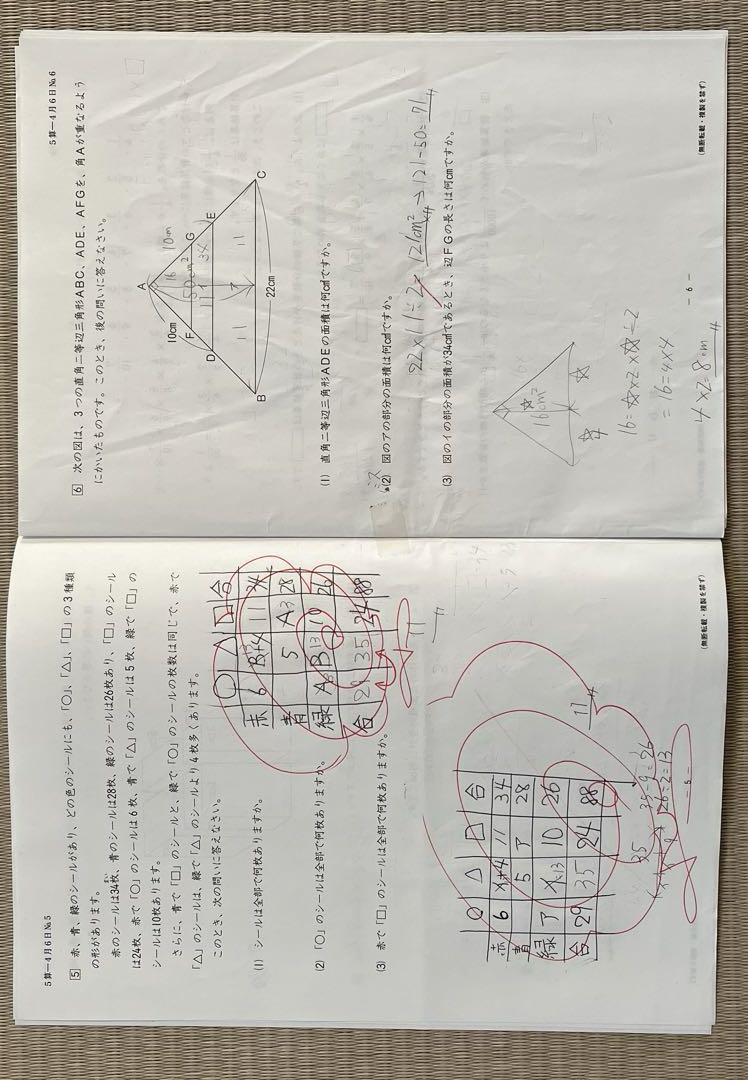 5算―4月6日№5
5 赤、青、緑のシールがあり、どの色のシールにも、「○」、「△」、「□」の3種類
の形があります。
赤のシールは34枚、青のシールは28枚、緑のシールは26枚あり、「□」のシール
は24枚、赤で「○」のシールは6枚、青で「△」のシールは5枚、緑で「□」の
シールは10枚あります。
さらに、青で「□」のシールと、緑で「○」のシールの枚数は同じで、赤で
「△」のシールは、緑で「△」のシールより4枚多くあります。
このとき、次の問いに答えなさい。
(1) シールは全部で何枚ありますか。
(2) 「○」のシールは全部で何枚ありますか。
(3) 赤で「□」のシールは全部で何枚ありますか。
○ △ □ 合
赤 6 B+4 11 34
青 5 A 28
緑 A B 13 10 26
合 29 35 24 88
11
○ △ □ 合
赤 6 x+4 11 34
青 5 ア 28
緑 ア x 13 10 26
合 29 35 24 88
11
35-9=26
26÷2=13
― 5 ―
(無断転載・複製を禁ず)
5算―4月6日№6
6 次の図は、3つの直角二等辺三角形ABC、ADE、AFGを、角Aが重なるよう
にかいたものです。このとき、後の問いに答えなさい。
A
10cm
10cm
16
F
G
50cm²
34
イ
D
E
ア
11
11
B
C
22cm
(1) 直角二等辺三角形ADEの面積は何cm²ですか。
(2) 図のアの部分の面積は何cm²ですか。
22×11÷2=121cm² → 121-50=71
(3) 図のイの部分の面積が34cm²であるとき、辺FGの長さは何cmですか。
16cm²
☆
☆
☆
16=☆×2×☆÷2
=16=4×4
4×2=8cm
― 6 ―
(無断転載・複製を禁ず)